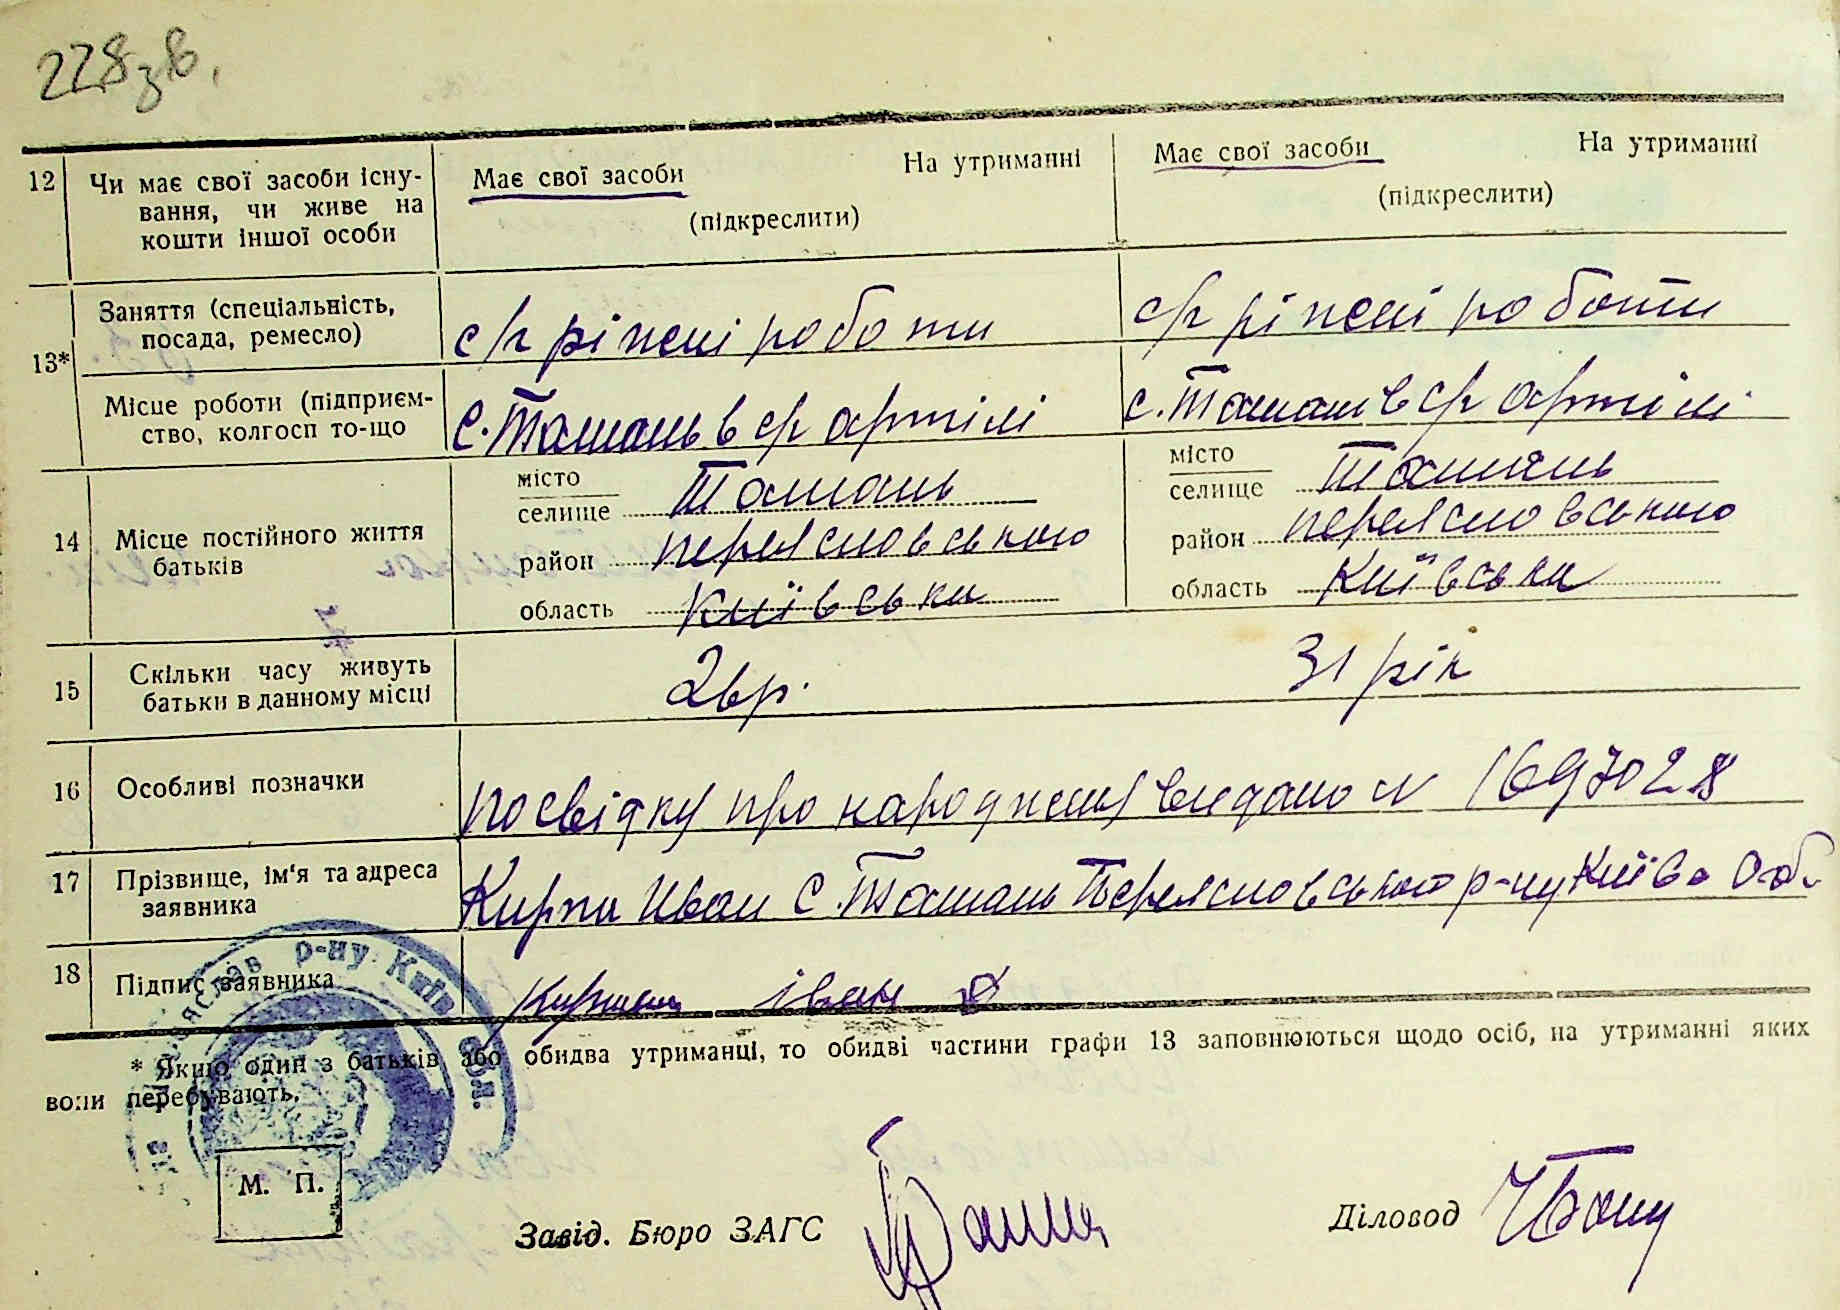 228 зв.
12 Чи має свої засоби існу-
вання, чи живе на
кошти іншої особи
Має свої засоби На утриманні
(підкреслити)
Має свої засоби На утриманні
(підкреслити)
13* Заняття (спеціальність,
посада, ремесло)
с/г ріжні роботи
с/г ріжні роботи
Місце роботи (підприєм-
ство, колгосп то-що
С. Ташань в с/г артілі
с. Ташань в с/г артілі
14 Місце постійного життя
батьків
місто
селище Ташань
район переяславського
область Київська
місто
селище Ташань
район переяславського
область Київська
15 Скільки часу живуть
батьки в данному місці
26 р.
31 рік
16 Особливі позначки
посвідку про народженя видано № 1697028
17 Прізвище, ім'я та адреса
заявника
Кирпа Иван С. Ташань Переясловського р-ну Київо Об.
18 Підпис заявника
іван
р-ну Київ
* Якщо один з батьків або обидва утриманці, то обидві частини графи 13 заповнюються щодо осіб, на утриманні яких
вони перебувають.
М. П.
Завід. Бюро ЗАГС
Діловод